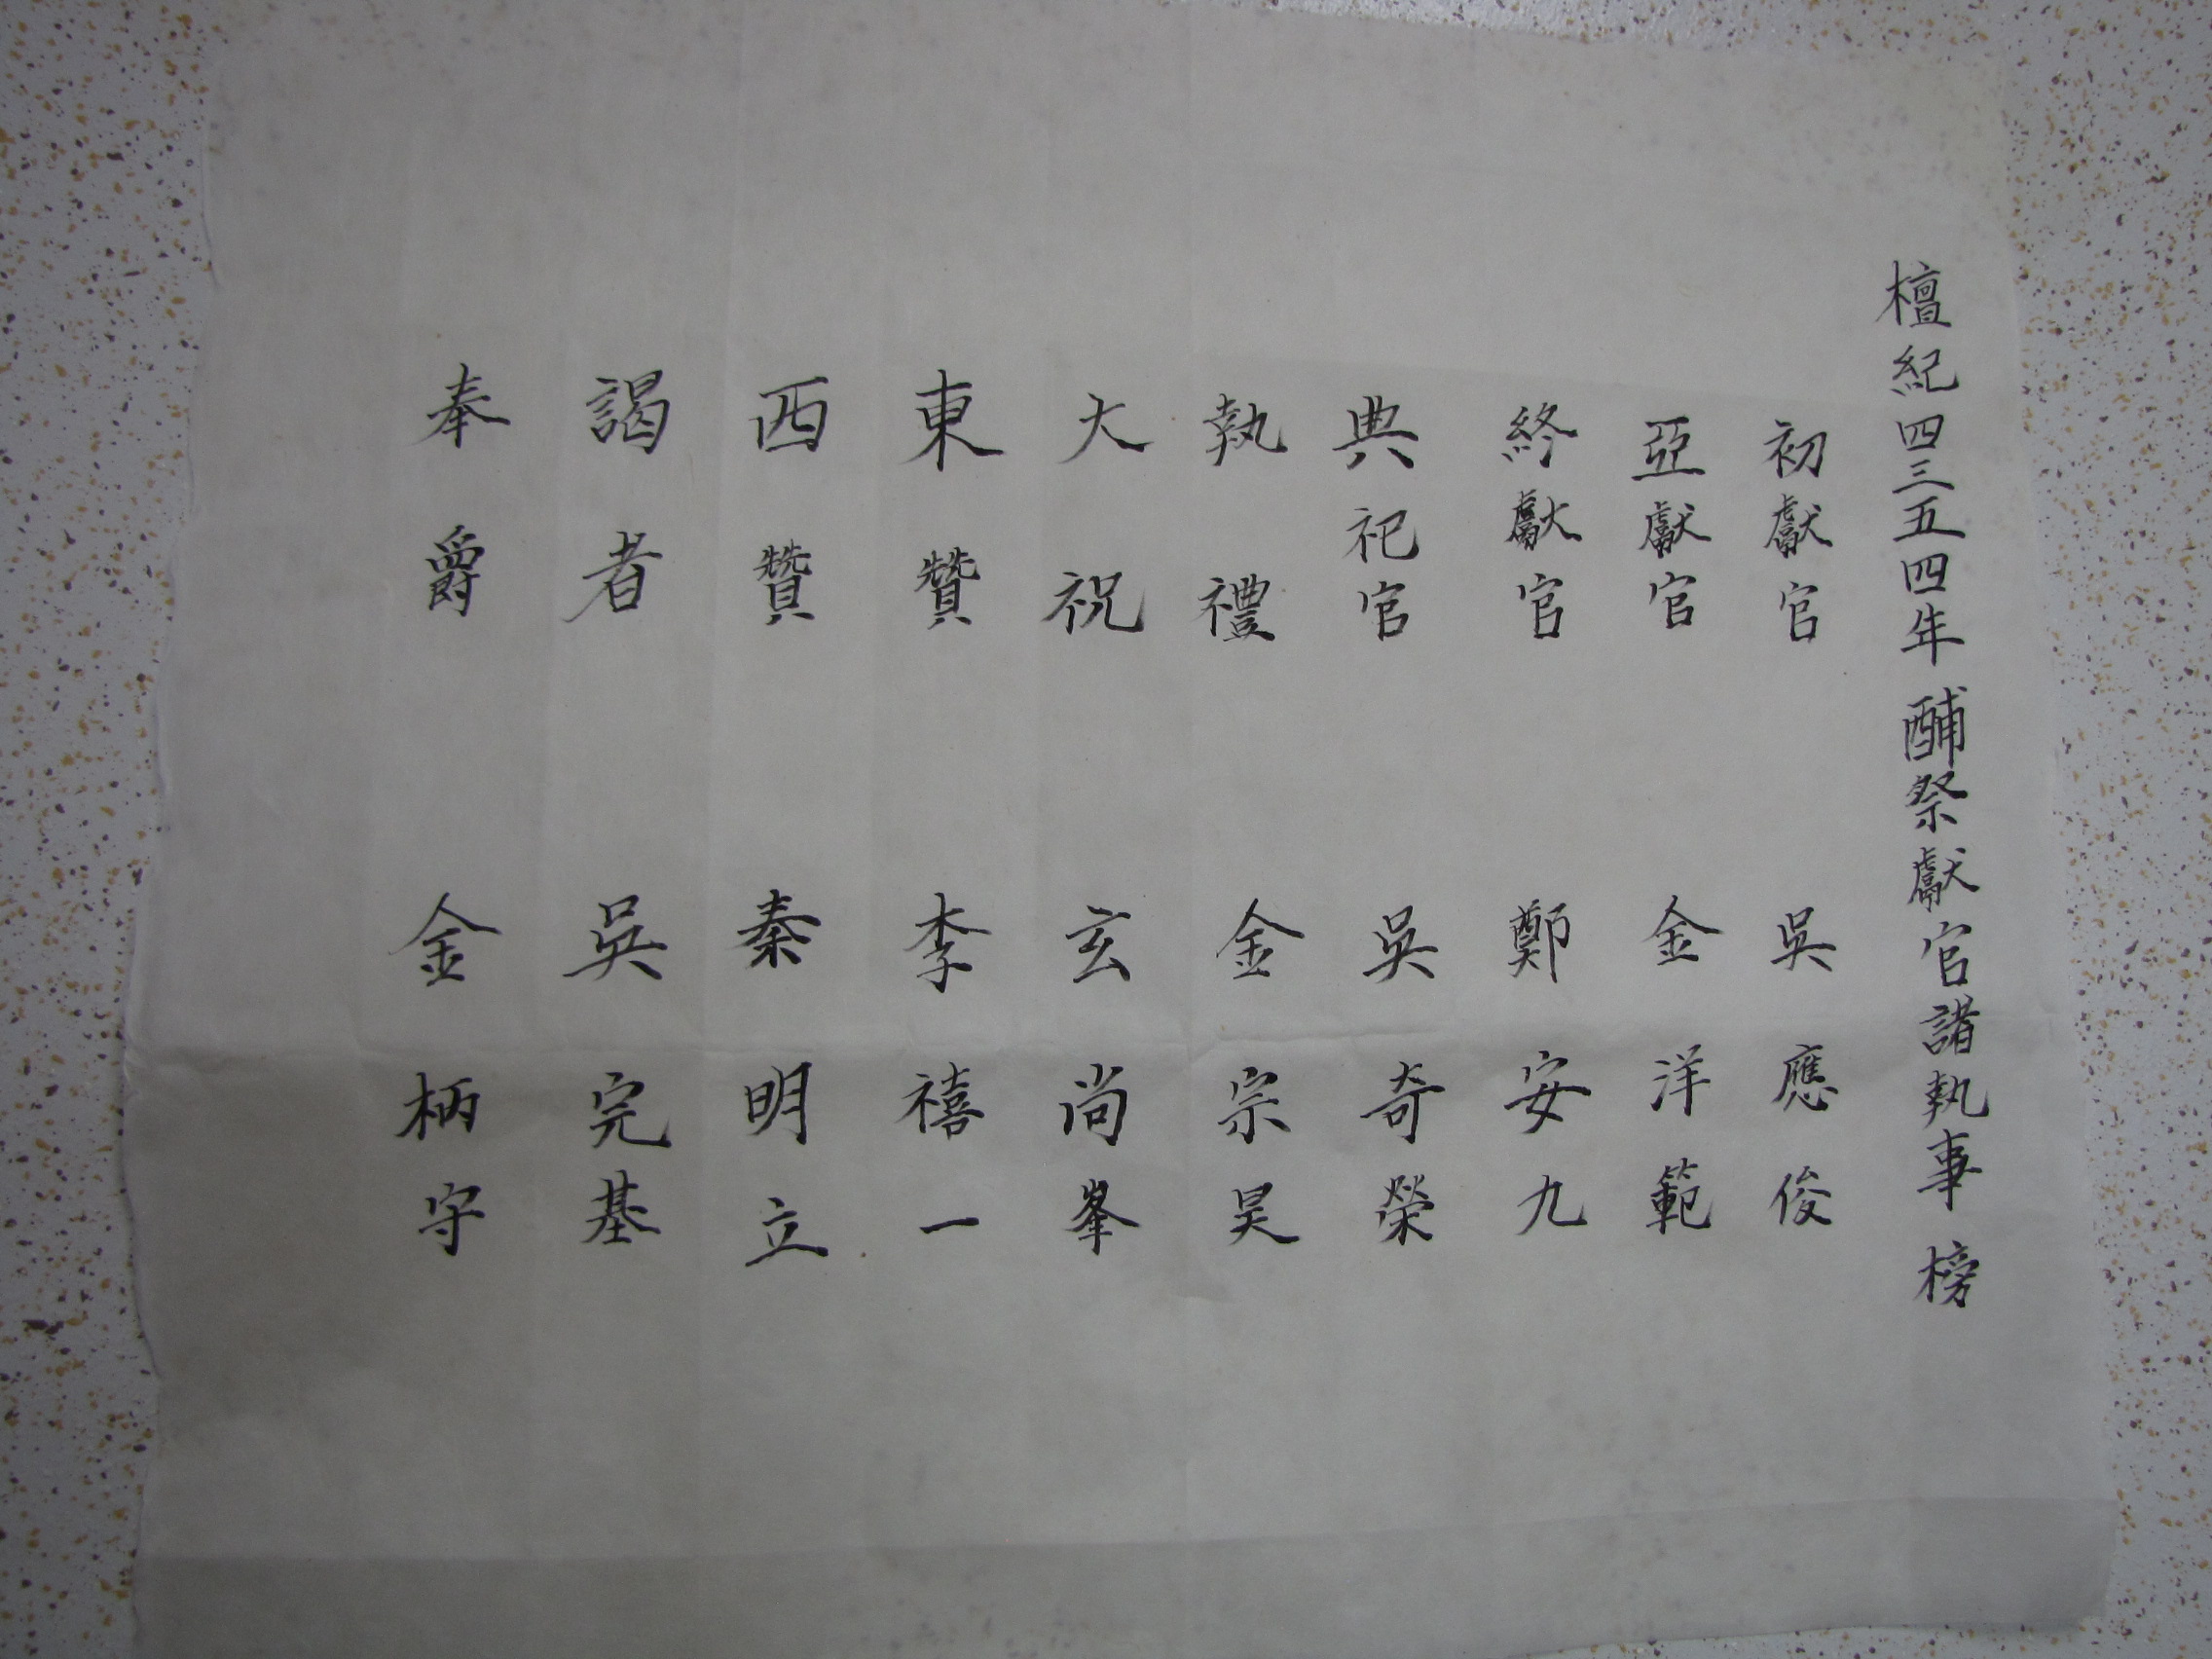 檀紀四三五四年 酺祭獻官諸執事 榜
初獻官 吳應俊
亞獻官 金洋範
終獻官 鄭安九
典祀官 吳奇榮
執禮 金宗昊
大祝 玄尚峯
東贊 李禧一
西贊 秦明立
謁者 吳完基
奉爵 金柄守